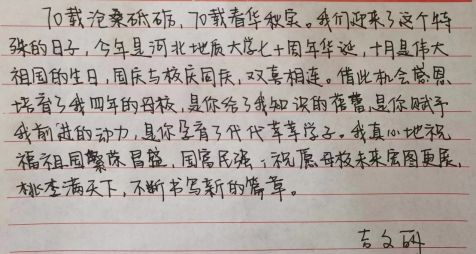 70载沧桑砥砺，70载春华秋实。我们迎来了这个特
殊的日子，今年是河北地质大学七十周年华诞，十月是伟大
祖国的生日，国庆与校庆同庆，双喜相连。借此机会感恩
培育了我四年的母校，是你给了我知识的蓓蕾，是你赋予
我前进的动力，是你孕育了代代莘莘学子。我真心地祝
福祖国繁荣昌盛，国富民强；祝愿母校未来宏图更展，
桃李满天下，不断书写新的篇章。
吉文